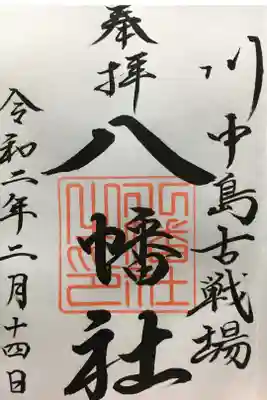 川中島古戦場
奉拝
八幡社
令和二年二月十四日